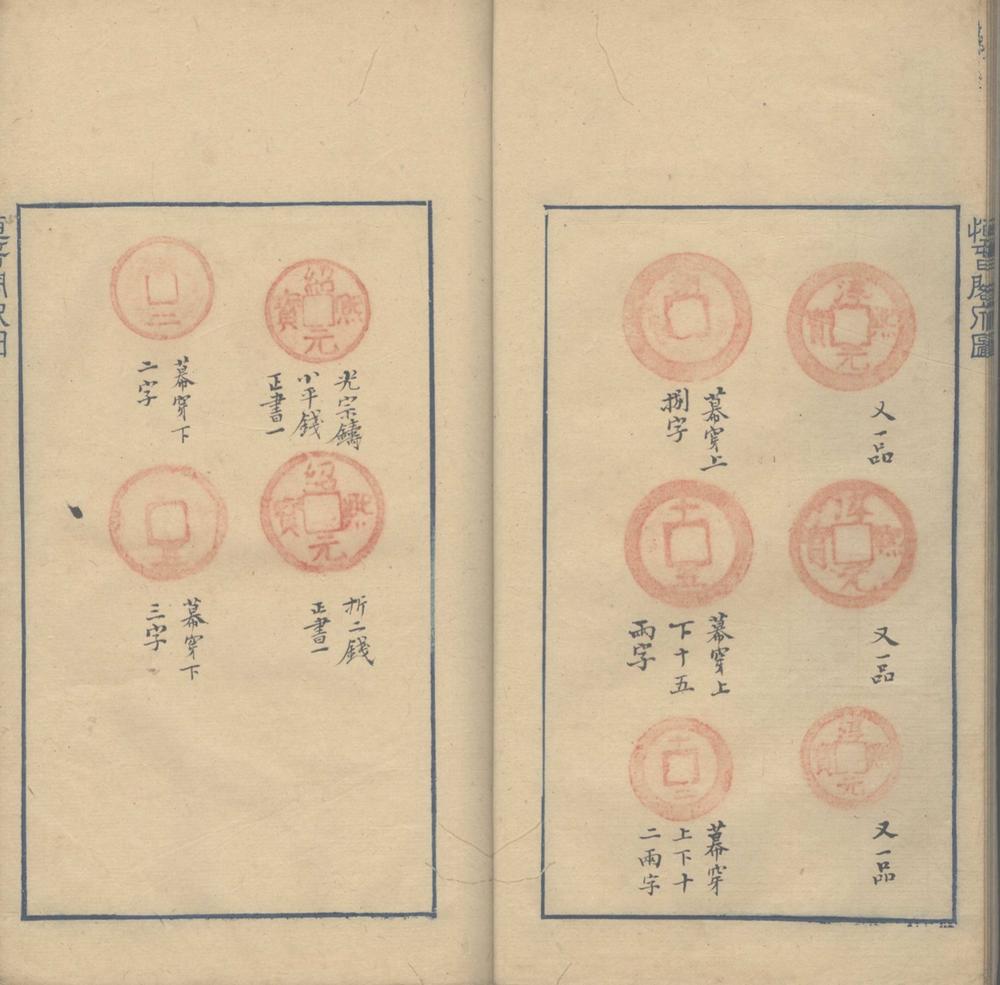 淳熙元寶
又一品
捌
幕穿上
捌字
淳熙元寶
又一品
十五
幕穿上
下十五
兩字
淳熙元寶
又一品
十二
幕穿
上下十
二兩字
紹熙元寶
光宗鑄
小平錢
正書一
二
幕穿下
二字
紹熙元寶
折二錢
正書一
三
幕穿下
三字